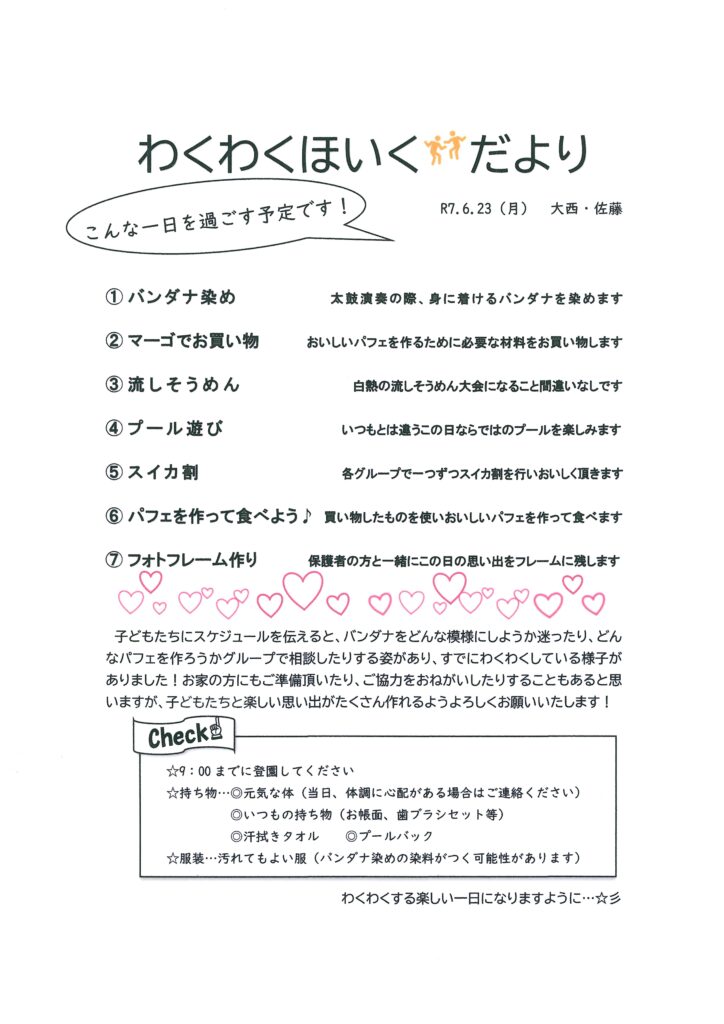 わくわくほいくだより
こんな一日を過ごす予定です！
R7.6.23（月）　大西・佐藤
① バンダナ染め　太鼓演奏の際、身に着けるバンダナを染めます
② マーゴでお買い物　おいしいパフェを作るために必要な材料をお買い物します
③ 流しそうめん　白熱の流しそうめん大会になること間違いなしです
④ プール遊び　いつもとは違うこの日ならではのプールを楽しみます
⑤ スイカ割　各グループで一つずつスイカ割を行いおいしく頂きます
⑥ パフェを作って食べよう♪　買い物したものを使いおいしいパフェを作って食べます
⑦ フォトフレーム作り　保護者の方と一緒にこの日の思い出をフレームに残します
子どもたちにスケジュールを伝えると、バンダナをどんな模様にしようか迷ったり、どん
なパフェを作ろうかグループで相談したりする姿があり、すでにわくわくしている様子が
ありました！お家の方にもご準備頂いたり、ご協力をおねがいしたりすることもあると思
いますが、子どもたちと楽しい思い出がたくさん作れるようよろしくお願いいたします！
Check
☆9：00 までに登園してください
☆持ち物…◎元気な体（当日、体調に心配がある場合はご連絡ください）
◎いつもの持ち物（お帳面、歯ブラシセット等）
◎汗拭きタオル　◎プールバック
☆服装…汚れてもよい服（バンダナ染めの染料がつく可能性があります）
わくわくする楽しい一日になりますように…☆彡